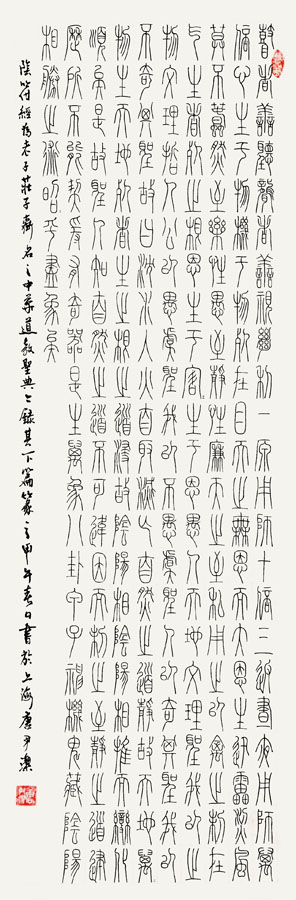 瞽者善聽聾者善視絕利一原用師十倍三返晝夜用師萬
倍心生于物死于物機在目天之無恩而大恩生迅雷烈風
莫不蠢然至樂性餘至靜性廉天之至私用之至公禽之制在
氣生者死之根死者生之根恩生于害害生于恩愚人以天地文理聖我以時
物文理哲人以愚虞聖我以不愚虞聖人以奇期聖我以
不奇期聖故曰沉水入火自取滅亡自然之道靜故天地萬
物生天地之道浸故陰陽勝陰陽相推而變化
順矣是故聖人知自然之道不可違因而制之至靜之道律
歷所不能契爰有奇器是生萬象八卦甲子神機鬼藏陰陽
相勝之術昭昭乎進乎象矣
陰符經為老子莊子齊名之中華道教聖典之錄其下篇篆之甲午春日書於上海唐尹